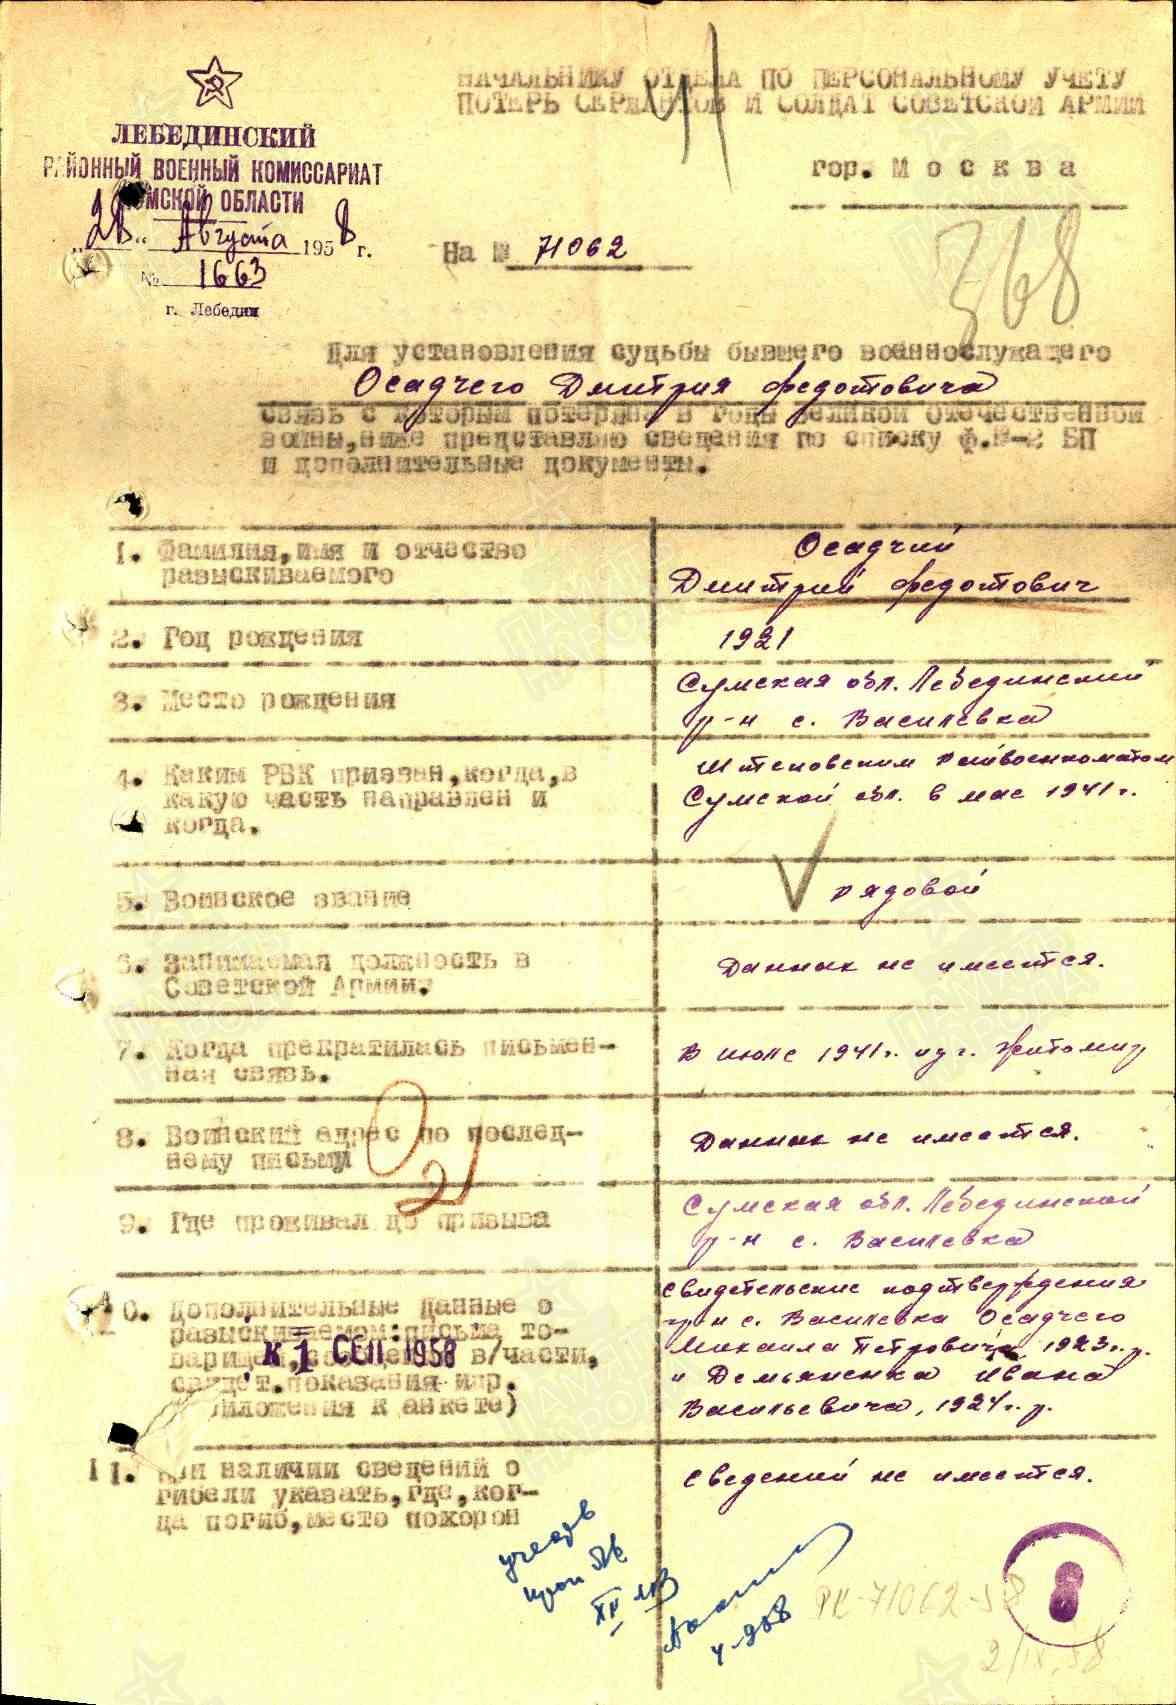 НАЧАЛЬНИКУ ОТДЕЛА ПО ПЕРСОНАЛЬНОМУ УЧЕТУ
ПОТЕРЬ СЕРЖАНТОВ И СОЛДАТ СОВЕТСКОЙ АРМИИ
гор. М о с к в а
ЛЕБЕДИНСКИЙ
РАЙОННЫЙ ВОЕННЫЙ КОМИССАРИАТ
СУМСКОЙ ОБЛАСТИ
„28“ Августа 1958 г.
№ 1663
г. Лебедин
На № 71062
368
Для установления судьбы бывшего военнослужащего
Осадчего Дмитрия Федотовича
связь с которым потеряна в годы Великой Отечественной
войны, ниже представляю сведения по списку ф.№-2 БП
и дополнительные документы.
1. Фамилия, имя и отчество
разыскиваемого
Осадчий
Дмитрий Федотович
2. Год рождения
1921
3. Место рождения
Сумская обл. Лебединский
р-н с. Василевка
4. Каким РВК призван, когда, в
какую часть направлен и
когда.
Штеповским райвоенкоматом
Сумской обл. в мае 1941 г.
5. Воинское звание
рядовой
6. Занимаемая должность в
Советской Армии.
Данных не имеется.
7. Когда прекратилась письмен-
ная связь.
В июле 1941 г. из г. Житомир
8. Воинский адрес по послед-
нему письму
Данных не имеется.
9. Где проживал до призыва
Сумская обл. Лебединской
р-н с. Василевка
10. Дополнительные данные о
разыскиваемом: письма то-
варищей, сообщения в/части,
свидет. показания и др.
приложения к анкете)
К 1 СЕН 1958
Свидетельские подтверждения
гр-н с. Василевка Осадчего
Михаила Петровича 1923 г.р.
и Демьяненка Ивана
Васильевича, 1924 г. р.
11. При наличии сведений о
гибели указать, где, ког-
да погиб, место похорон
Сведений не имеется.
8
РК-71062-58
2/IX.58